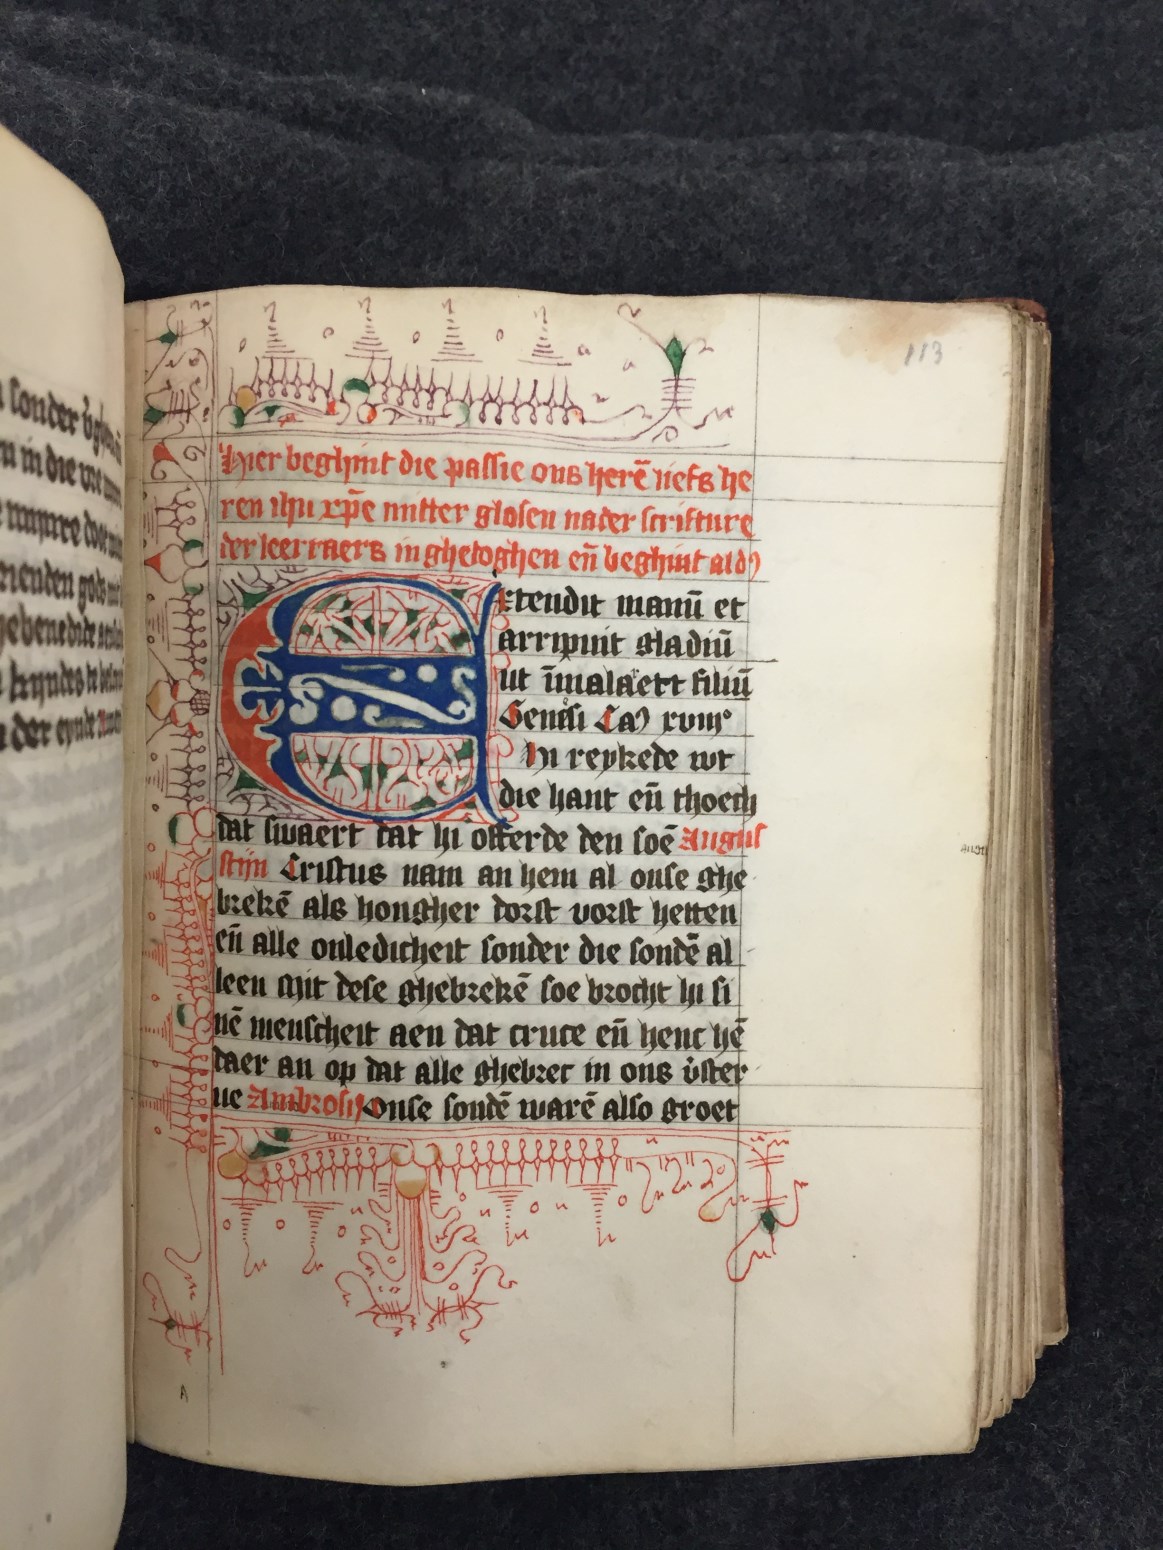 113
Hier beghint die passie ons herē liefs he
ren ihū xp̄e mitter glosen nader scrifture
der leerraers in ghetoghen en̄ beghint ald
Extendit manū et
arripuit gladiū
ut īmolaret filiū
Genesi Ca xviiiº
Hi reykede wt
die hant en̄ thoech
dat swaert dat hi offerde den soē Augus
stijn Cristus nam an hem al onse ghe
brekē als hongher dorst vorst hetten
en̄ alle onledicheit sonder die sondē al
leen Mit dese ghebrekē soe brocht hi si
nē menscheit aen dat cruce en̄ henc hē
daer an op dat alle ghebrec in ons v̄ster
ue Ambrosi Onse sondē warē also groet
A